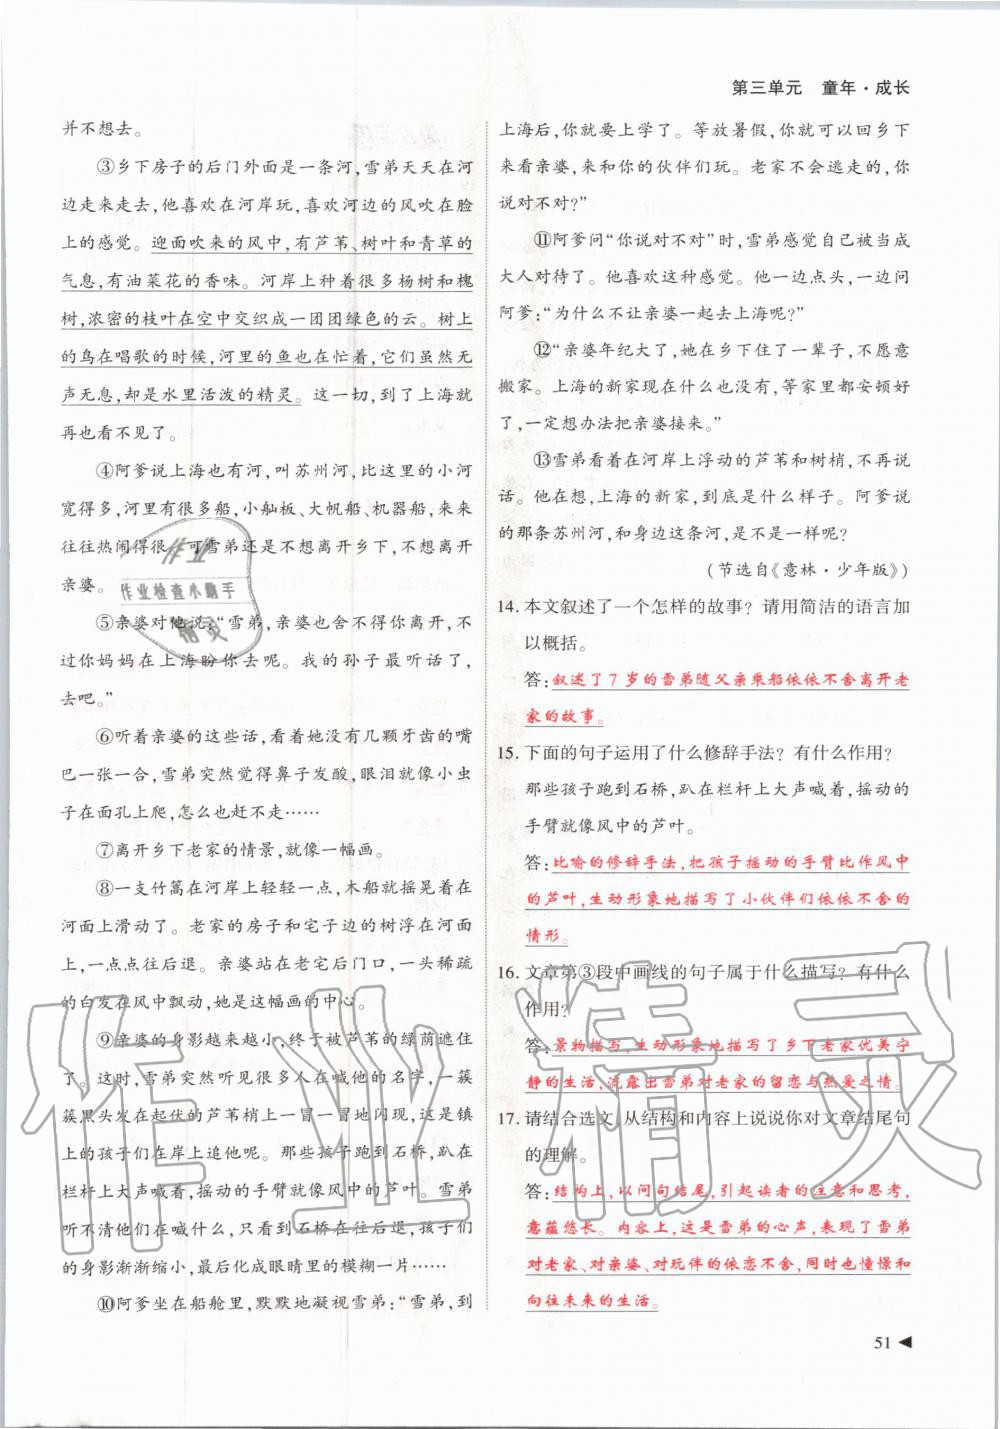 第三单元　童年·成长
并不想去。
③乡下房子的后门外面是一条河,雪弟天天在河
边走来走去,他喜欢在河岸玩,喜欢河边的风吹在脸
上的感觉。迎面吹来的风中,有芦苇、树叶和青草的
气息,有油菜花的香味。河岸上种着很多杨树和槐
树,浓密的枝叶在空中交织成一团团绿色的云。树上
的鸟在唱歌的时候,河里的鱼也在忙着,它们虽然无
声无息,却是水里活泼的精灵。这一切,到了上海就
再也看不见了。
④阿爹说上海也有河,叫苏州河,比这里的小河
宽得多。河里有很多船,小舢板、大帆船、机器船,来来
往往热闹得很。可雪弟还是不想离开乡下,不想离开
亲婆。
⑤亲婆对他说:“雪弟,亲婆也舍不得你离开,不
过你妈妈在上海盼你去呢。我的孙子最听话了,
去吧。”
⑥听着亲婆的这些话,看着她没有几颗牙齿的嘴
巴一张一合,雪弟突然觉得鼻子发酸,眼泪就像小虫
子在面孔上爬,怎么也赶不走……
⑦离开乡下老家的情景,就像一幅画。
⑧一支竹篙在河岸上轻轻一点,木船就摇晃着在
河面上滑动了。老家的房子和宅子边的树浮在河面
上,一点点往后退。亲婆站在老宅后门口,一头稀疏
的白发在风中飘动,她是这幅画的中心。
⑨亲婆的身影越来越小,终于被芦苇的绿荫遮住
了。这时,雪弟突然听见很多人在喊他的名字,一簇
簇黑头发在起伏的芦苇梢上一冒一冒地闪现,这是镇
上的孩子们在岸上追他呢。那些孩子跑到石桥,趴在
栏杆上大声喊着,摇动的手臂就像风中的芦叶。雪弟
听不清他们在喊什么,只看到石桥在往后退,孩子们
的身影渐渐缩小,最后化成眼睛里的模糊一片……
⑩阿爹坐在船舱里,默默地凝视雪弟:“雪弟,到
上海后,你就要上学了。等放暑假,你就可以回乡下
来看亲婆,来和你的伙伴们玩。老家不会逃走的,你
说对不对?”
⑪阿爹问“你说对不对”时,雪弟感觉自己被当成
大人对待了。他喜欢这种感觉。他一边点头,一边问
阿爹:“为什么不让亲婆一起去上海呢?”
⑫“亲婆年纪大了,她在乡下住了一辈子,不愿意
搬家。上海的新家现在什么也没有,等家里都安顿好
了,一定想办法把亲婆接来。”
⑬雪弟看着在河岸上浮动的芦苇和树梢,不再说
话。他在想,上海的新家,到底是什么样子。阿爹说
的那条苏州河,和身边这条河,是不是一样呢?
(节选自《意林·少年版》)
14. 本文叙述了一个怎样的故事?请用简洁的语言加
以概括。
答:叙述了7岁的雪弟随父亲乘船依依不舍离开老
家的故事。
15. 下面的句子运用了什么修辞手法?有什么作用?
那些孩子跑到石桥,趴在栏杆上大声喊着,摇动的
手臂就像风中的芦叶。
答:比喻的修辞手法,把孩子摇动的手臂比作风中
的芦叶,生动形象地描写了小伙伴们依依不舍的
情形。
16. 文章第③段中画线的句子属于什么描写?有什么
作用?
答:景物描写,生动形象地描写了乡下老家优美宁
静的生活,流露出雪弟对老家的留恋与热爱之情。
17. 请结合选文,从结构和内容上说说你对文章结尾句
的理解。
答:结构上,以问句结尾,引起读者的注意和思考,
意蕴悠长。内容上,这是雪弟的心声,表现了雪弟
对老家、对亲婆、对玩伴的依恋不舍,同时也憧憬和
向往未来的生活。
51
作业
作业检查小助手
精灵
作业精灵